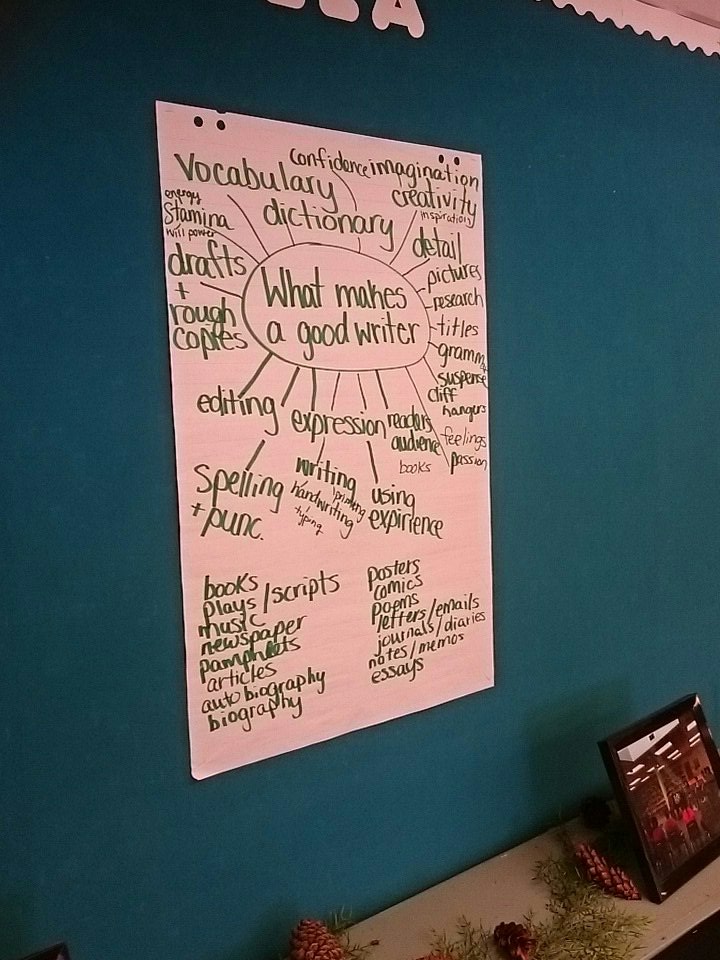 vocabulary
confidence
imagination
creativity
inspiration
dictionary
energy
Stamina
will power
drafts
+
rough
copies
What makes
a good writer
detail
pictures
research
titles
suspense
cliff
hangers
feelings
passion
editing
expression
readers
audience
books
Spelling
+ punc.
writing
printing
handwriting
+ typing
using
expirience
books
plays/scripts
music
newspaper
pamphlets
articles
autobiography
biography
posters
comics
poems
letters/emails
journals/diaries
notes/memos
essays